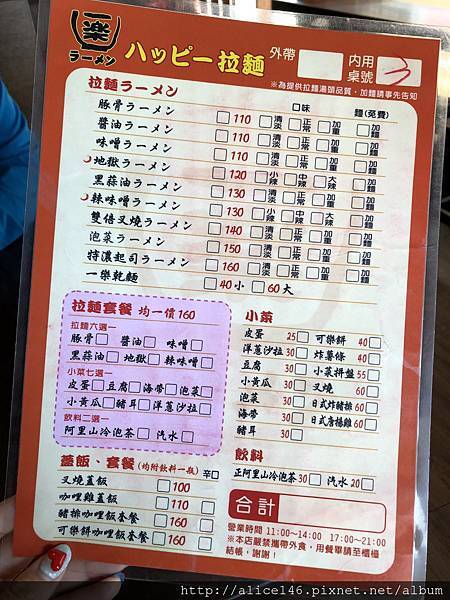 一樂
ラーメン
ハッピー拉麵 外帶 內用桌號 3
※為提供拉麵湯頭品質,加麵請事先告知
拉麵ラーメン 口味 麵(免費)
豚骨ラーメン 110 清淡 正常 加重 加麵
醬油ラーメン 110 清淡 正常 加重 加麵
味噌ラーメン 110 清淡 正常 加重 加麵
地獄ラーメン 120 小辣 中辣 大辣 加麵
黑蒜油ラーメン 130 清淡 正常 加重 加麵
辣味噌ラーメン 130 小辣 中辣 大辣 加麵
雙倍叉燒ラーメン 140 清淡 正常 加重 加麵
泡菜ラーメン 150 清淡 正常 加重 加麵
特濃起司ラーメン 160 清淡 正常 加重 加麵
一樂乾麵 40小 60大
拉麵套餐 均一價160
拉麵六選一
豚骨 醬油 味噌
黑蒜油 地獄 辣味噌
小菜七選一
皮蛋 豆腐 海帶 泡菜
小黃瓜 豬耳 洋蔥沙拉
飲料二選一
阿里山冷泡茶 汽水
小菜
皮蛋 25 可樂餅 40
洋蔥沙拉 30 炸薯條 40
豆腐 30 小菜拼盤 55
小黃瓜 30 叉燒 60
泡菜 30 日式炸豬排 60
海帶 30 日式唐楊雞 60
豬耳 30
飲料
阿里山冷泡茶 30 汽水 20
蓋飯、套餐 (均附飲料一瓶) 辛
叉燒蓋飯 100
咖哩雞蓋飯 110
豬排咖哩飯套餐 160
可樂餅咖哩飯套餐 160
合計
營業時間 11:00~14:00 17:00~21:00
※本店嚴禁攜帶外食,用餐畢請至櫃檯
結帳,謝謝!
http://alice146.pixnet.net/album